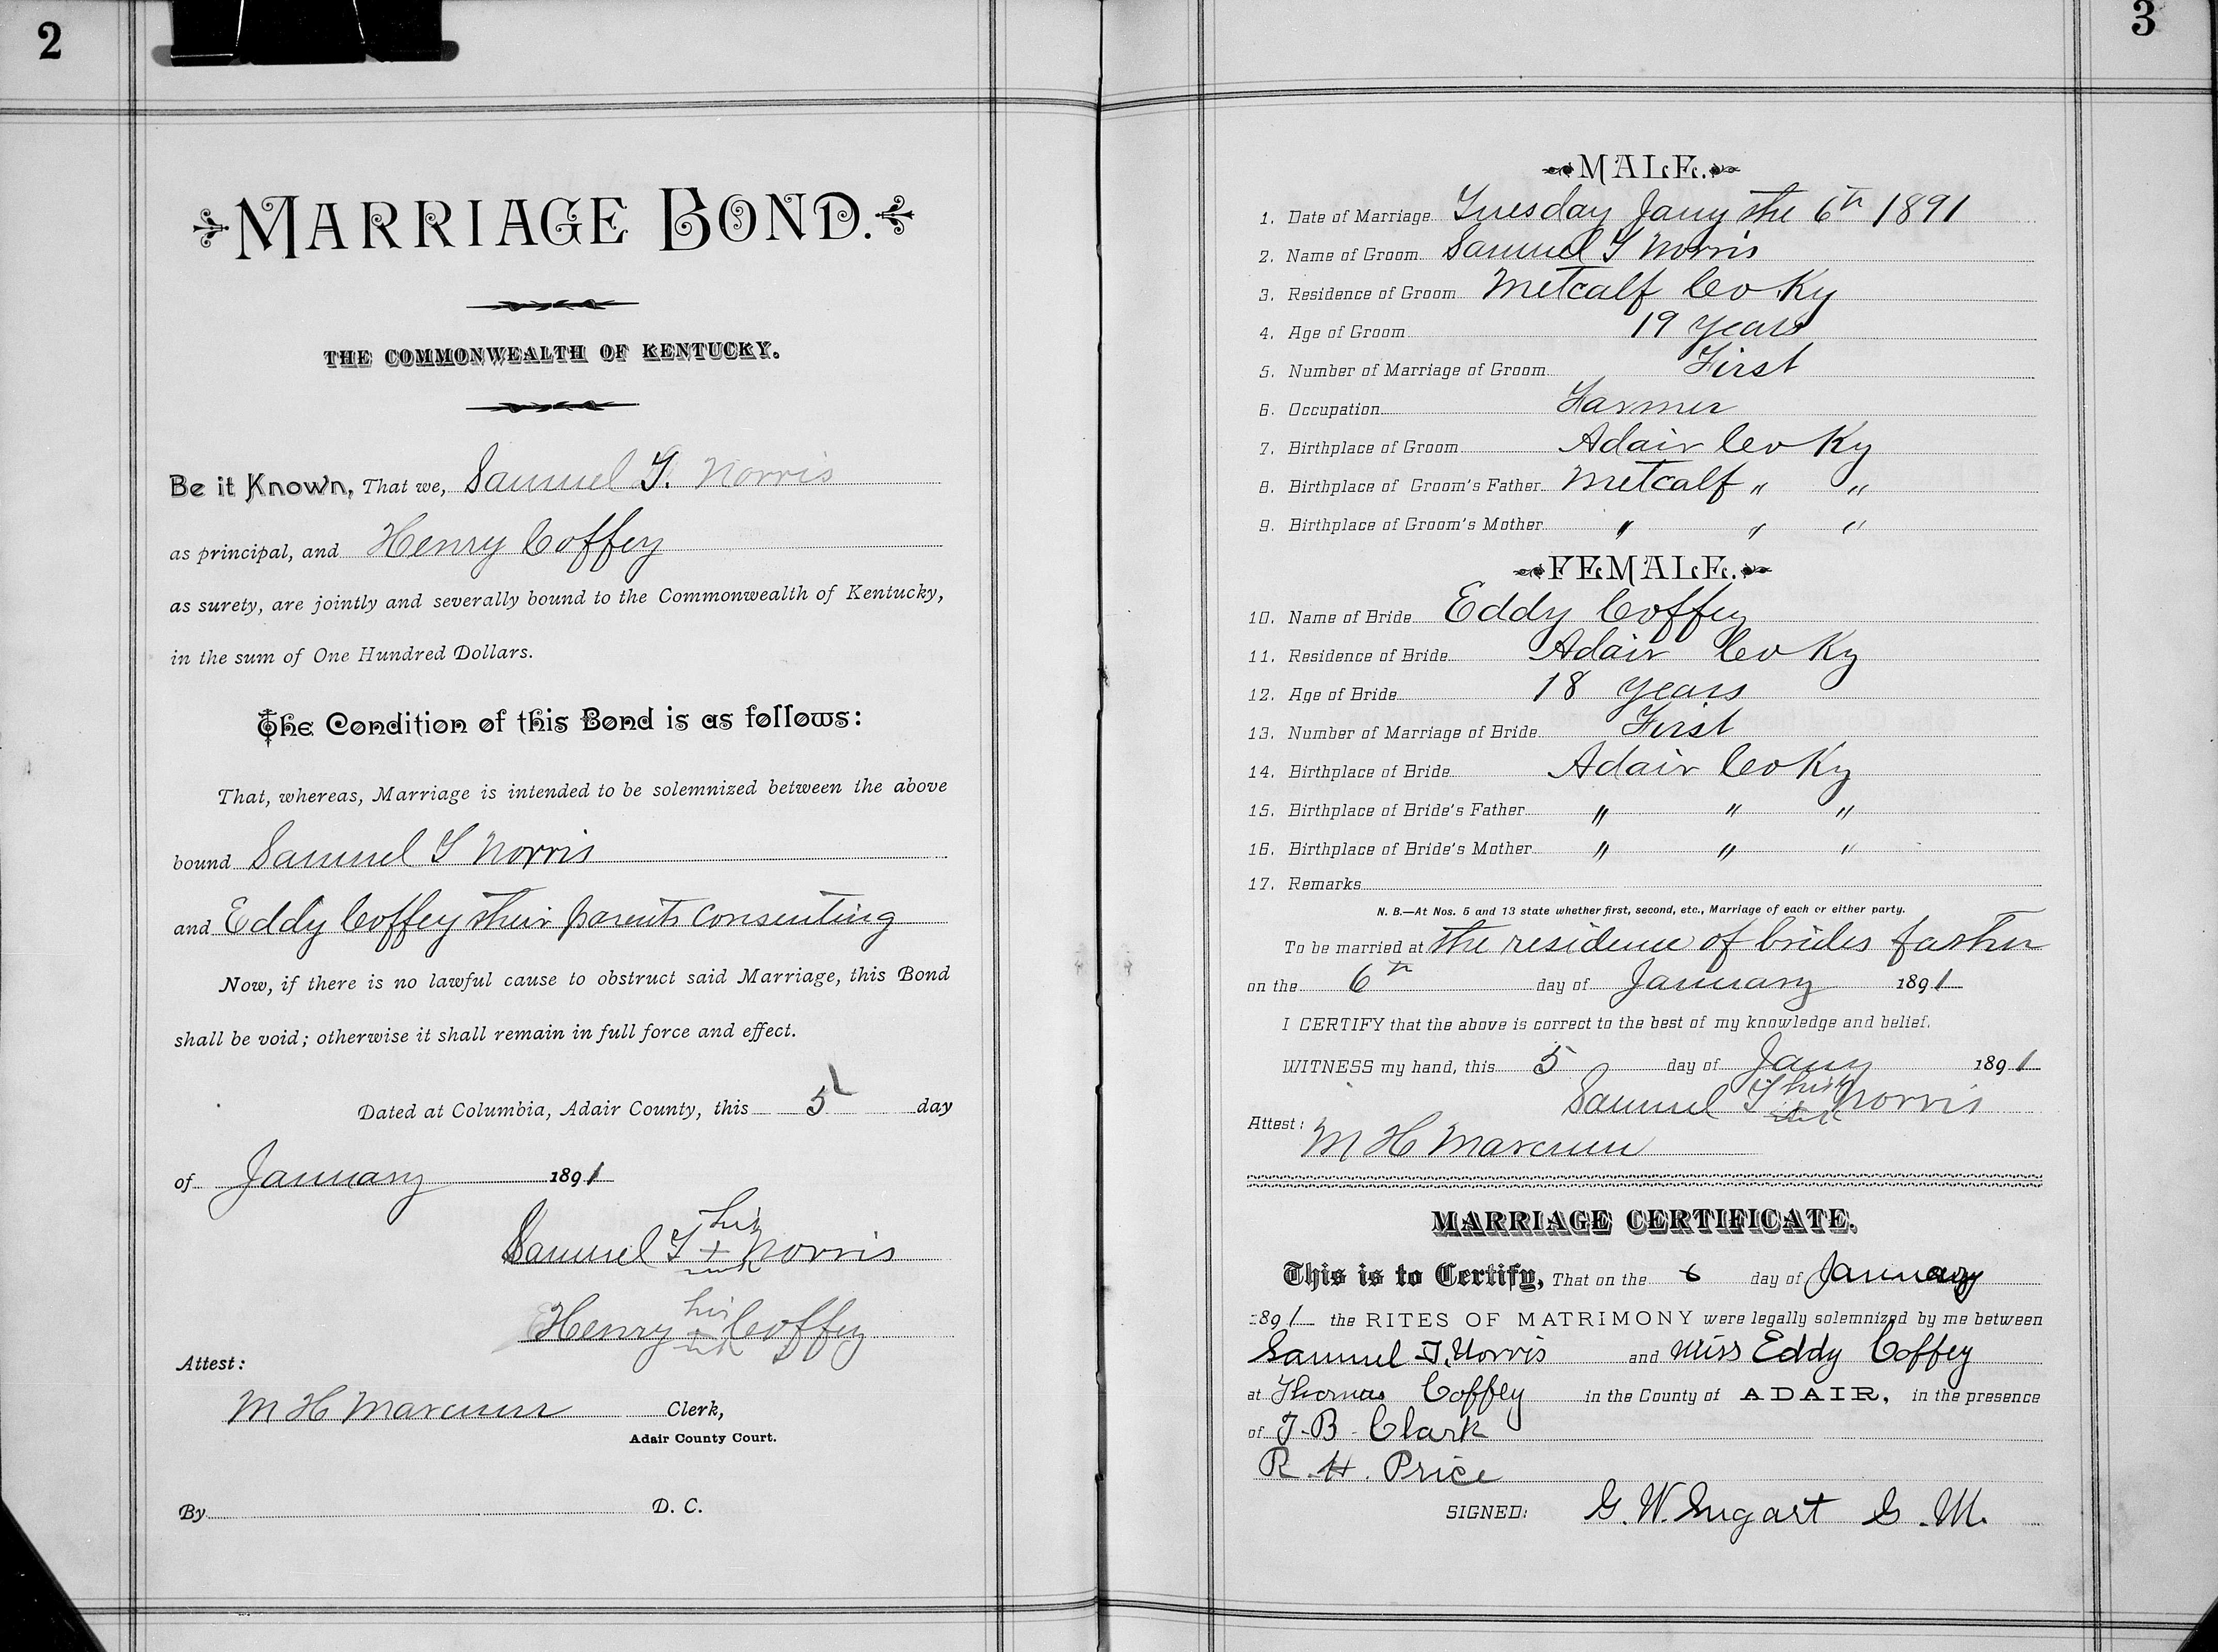 2
MARRIAGE BOND.
THE COMMONWEALTH OF KENTUCKY.
Be it Known, That we, Samuel T. Norris
as principal, and Henry Coffey
as surety, are jointly and severally bound to the Commonwealth of Kentucky,
in the sum of One Hundred Dollars.
The Condition of this Bond is as follows:
That, whereas, Marriage is intended to be solemnized between the above
bound Samuel T Norris
and Eddy Coffey their parents consenting
Now, if there is no lawful cause to obstruct said Marriage, this Bond
shall be void; otherwise it shall remain in full force and effect.
Dated at Columbia, Adair County, this 5 day
of January 1891
his
Samuel T + Norris
mark
his
Henry Coffey
mark
Attest:
M H Marcum Clerk,
Adair County Court.
By D. C.
3
MALE.
1. Date of Marriage Tuesday Jany the 6th 1891
2. Name of Groom Samuel T Norris
3. Residence of Groom Metcalf Co Ky
4. Age of Groom 19 years
5. Number of Marriage of Groom First
6. Occupation Farmer
7. Birthplace of Groom Adair Co Ky
8. Birthplace of Groom's Father Metcalf " "
9. Birthplace of Groom's Mother " " "
FEMALE.
10. Name of Bride Eddy Coffey
11. Residence of Bride Adair Co Ky
12. Age of Bride 18 years
13. Number of Marriage of Bride First
14. Birthplace of Bride Adair Co Ky
15. Birthplace of Bride's Father " " "
16. Birthplace of Bride's Mother " " "
17. Remarks
N. B.—At Nos. 5 and 13 state whether first, second, etc., Marriage of each or either party.
To be married at the residence of brides father
on the 6th day of January 1891
I CERTIFY that the above is correct to the best of my knowledge and belief.
WITNESS my hand, this 5 day of Jany 1891
his
Samuel T Norris
mark
Attest:
M H Marcum
MARRIAGE CERTIFICATE.
This is to Certify, That on the 6 day of January
1891 the RITES OF MATRIMONY were legally solemnized by me between
Samuel T. Norris and Miss Eddy Coffey
at Thomas Coffey in the County of ADAIR, in the presence
of T. B. Clark
R. H. Price
SIGNED: G. W. Sugart G. M.